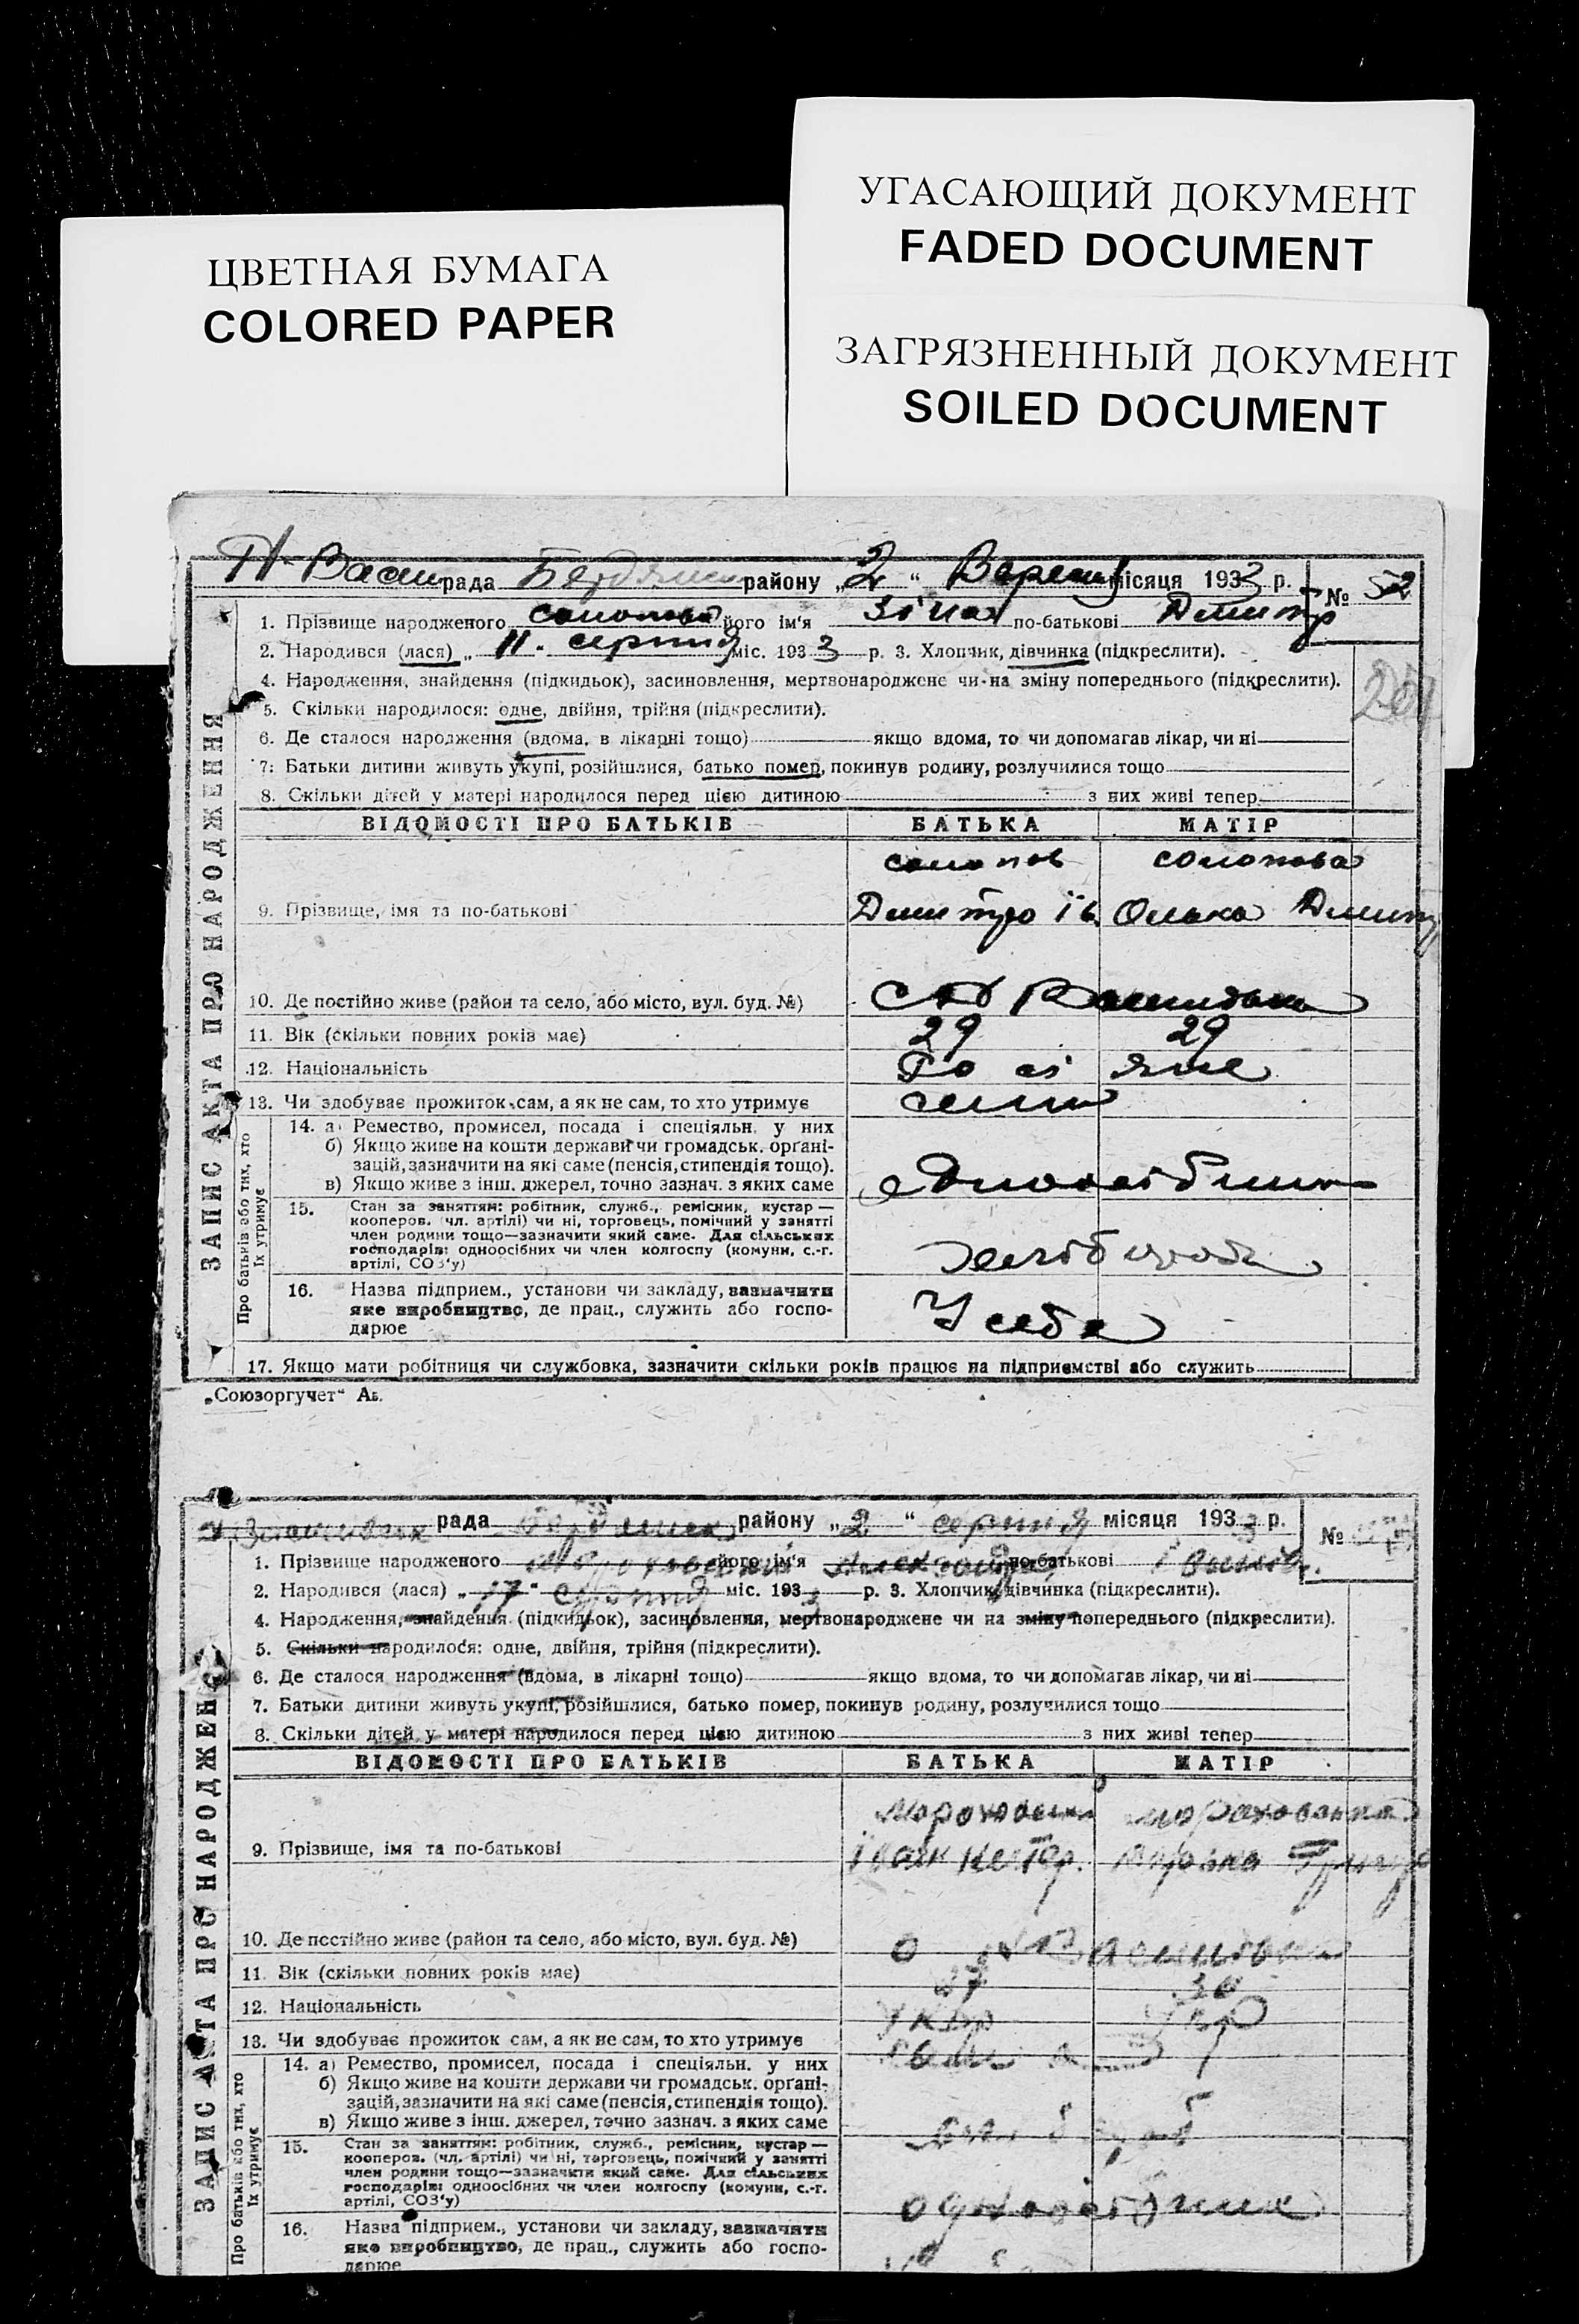 ЦВЕТНАЯ БУМАГА
COLORED PAPER
УГАСАЮЩИЙ ДОКУМЕНТ
FADED DOCUMENT
ЗАГРЯЗНЕННЫЙ ДОКУМЕНТ
SOILED DOCUMENT
Н-Васи рада Бердянськ району „2“ Вересня місяця 1933 р. № 52
1. Прізвище народженого його ім'я Зіна по-батькові Дмитр
2. Народився (лася) „11. серпня міс. 1933 р. 3. Хлопчик, дівчинка (підкреслити).
204
4. Народження, знайдення (підкидьок), засиновлення, мертвонароджене чи на зміну попереднього (підкреслити).
5. Скільки народилося: одне, двійня, трійня (підкреслити).
6. Де сталося народження (вдома, в лікарні тощо) якщо вдома, то чи допомагав лікар, чи ні
7. Батьки дитини живуть укупі, розійшлися, батько помер, покинув родину, розлучилися тощо
8. Скільки дітей у матері народилося перед цією дитиною з них живі тепер
ВІДОМОСТІ ПРО БАТЬКІВ БАТЬКА МАТІР
9. Прізвище, імя та по-батькові Дмитро Ів. Дмитр
10. Де постійно живе (район та село, або місто, вул. буд. №)
11. Вік (скільки повних років має) 29 29
12. Національність Росіяне
13. Чи здобуває прожиток сам, а як не сам, то хто утримує сами
14. а) Ремество, промисел, посада і спеціяльн. у них
б) Якщо живе на кошти держави чи громадськ. органі-
зацій, зазначити на які саме (пенсія, стипендія тощо).
в) Якщо живе з інш. джерел, точно зазнач. з яких саме
15. Стан за заняттям: робітник, служб., ремісник, кустар —
кооперов. (чл. артілі) чи ні, торговець, помічний у занятті
член родини тощо—зазначити який саме. Для сільських
господарів: одноосібних чи член колгоспу (комуни, с.-г.
артілі, СОЗ'у)
хлібороби
16. Назва підприєм., установи чи закладу, зазначити
яке виробництво, де прац., служить або госпо-
дарює
У себе
17. Якщо мати робітниця чи службовка, зазначити скільки років працює на підприємстві або служить
ЗАПИС АКТА ПРО НАРОДЖЕННЯ
Про батьків або тих, хто
їх утримує
„Союзоргучет“
рада Бердянськ району „2“ серпня місяця 1933 р. №
1. Прізвище народженого його ім'я по-батькові
2. Народився (лася) „17“ серпня міс. 193 р. 3. Хлопчик, дівчинка (підкреслити).
4. Народження, знайдення (підкидьок), засиновлення, мертвонароджене чи на зміну попереднього (підкреслити).
5. Скільки народилося: одне, двійня, трійня (підкреслити).
6. Де сталося народження (вдома, в лікарні тощо) якщо вдома, то чи допомагав лікар, чи ні
7. Батьки дитини живуть укупі, розійшлися, батько помер, покинув родину, розлучилися тощо
8. Скільки дітей у матері народилося перед цією дитиною з них живі тепер
ВІДОМОСТІ ПРО БАТЬКІВ БАТЬКА МАТІР
9. Прізвище, імя та по-батькові
10. Де постійно живе (район та село, або місто, вул. буд. №)
11. Вік (скільки повних років має) 30
12. Національність Укр Укр
13. Чи здобуває прожиток сам, а як не сам, то хто утримує
14. а) Ремество, промисел, посада і спеціяльн. у них
б) Якщо живе на кошти держави чи громадськ. органі-
зацій, зазначити на які саме (пенсія, стипендія тощо).
в) Якщо живе з інш. джерел, точно зазнач. з яких саме
15. Стан за заняттям: робітник, служб., ремісник, кустар —
кооперов. (чл. артілі) чи ні, торговець, помічний у занятті
член родини тощо—зазначити який саме. Для сільських
господарів: одноосібних чи член колгоспу (комуни, с.-г.
артілі, СОЗ'у)
16. Назва підприєм., установи чи закладу, зазначити
яке виробництво, де прац., служить або госпо-
дарюе
ЗАПИС АКТА ПРО НАРОДЖЕН
Про батьків або тих, хто
їх утримує